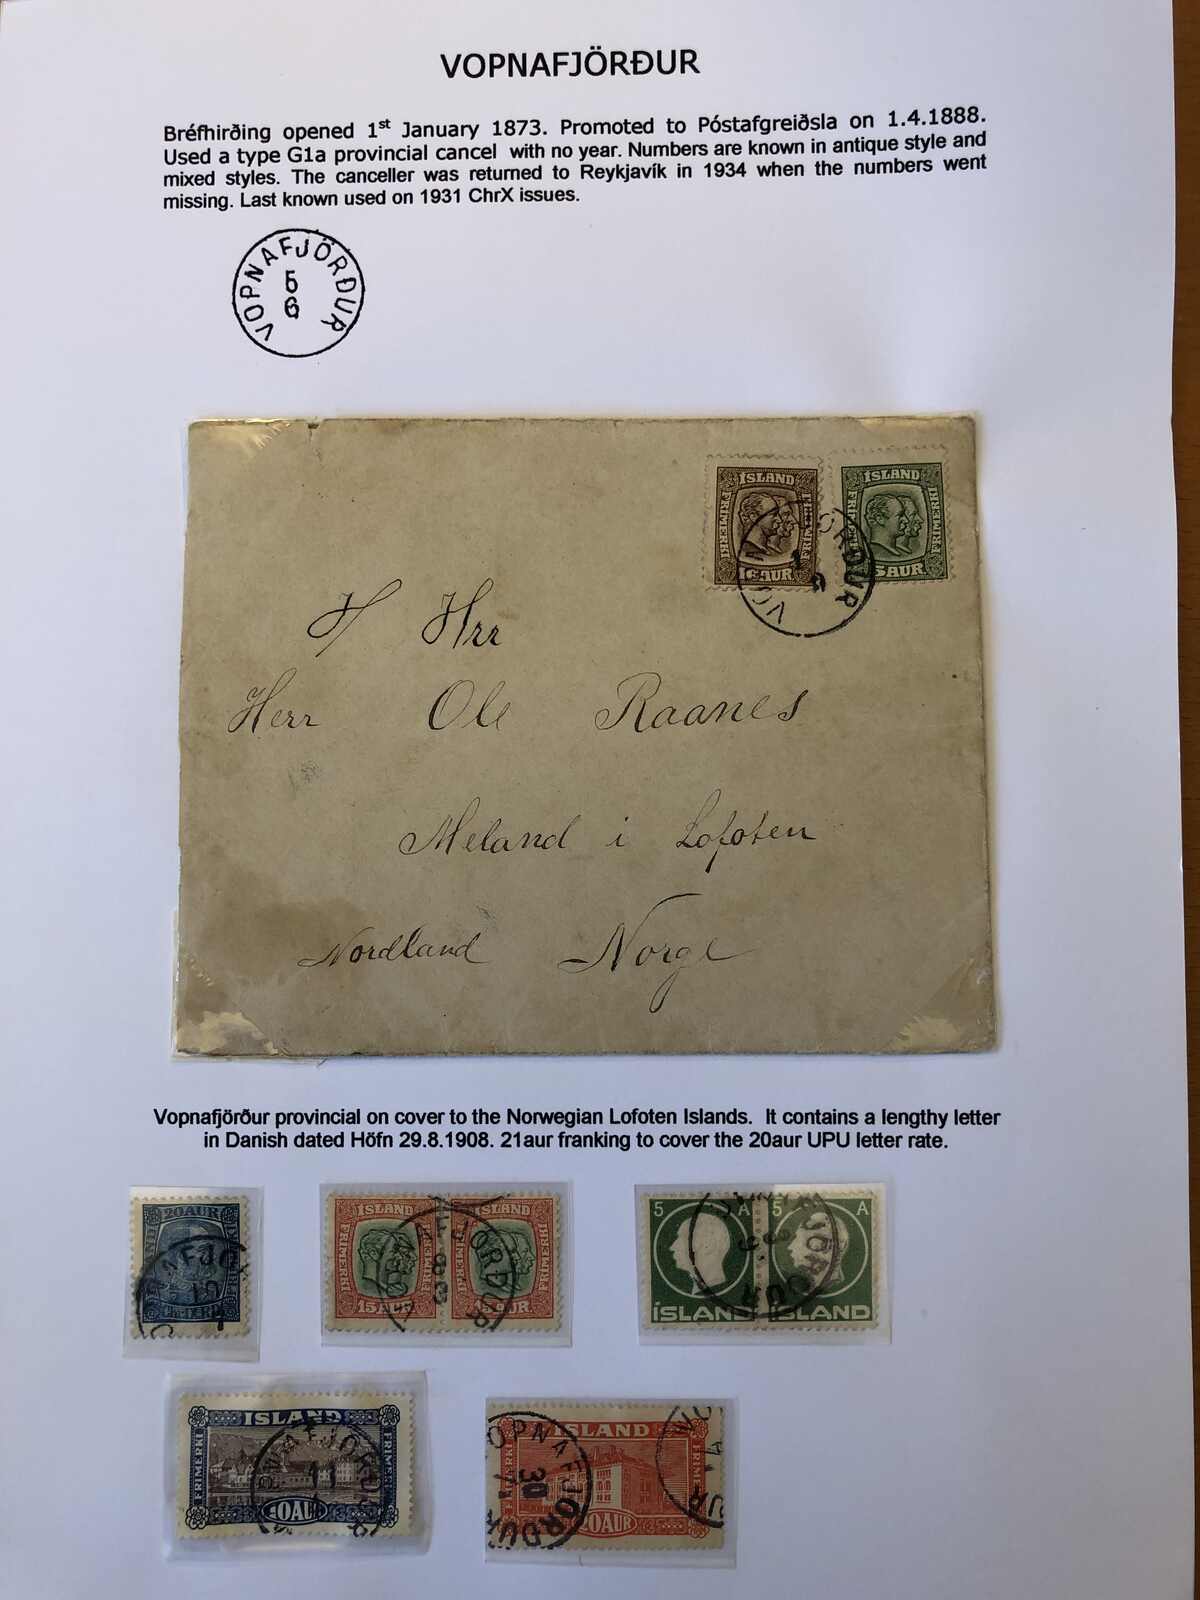 VOPNAFJÖRÐUR
Bréfhirðing opened 1st January 1873. Promoted to Póstafgreiðsla on 1.4.1888.
Used a type G1a provincial cancel with no year. Numbers are known in antique style and
mixed styles. The canceller was returned to Reykjavík in 1934 when the numbers went
missing. Last known used on 1931 ChrX issues.
VOPNAFJÖRÐUR
5
6
ÍSLAND
FRIMERKI
FRIMERKI
AUR
ÍSLAND
FRIMERKI
FRIMERKI
5 AUR
H Hrr
Herr Ole Raanes
Meland i Lofoten
Nordland Norge
Vopnafjörður provincial on cover to the Norwegian Lofoten Islands. It contains a lengthy letter
in Danish dated Höfn 29.8.1908. 21aur franking to cover the 20aur UPU letter rate.
20 AUR
10
ÍSLAND
FRIMERKI
FRIMERKI
15 AUR
ÍSLAND
FRIMERKI
AUR
5 A
ÍSLAND
5 A
ÍSLAND
ÍSLAND
FRIMERKI
FRIMERKI
AUR
11
ÍSLAND
FRIMERKI
AUR
OPNAFJÖRÐUR
30